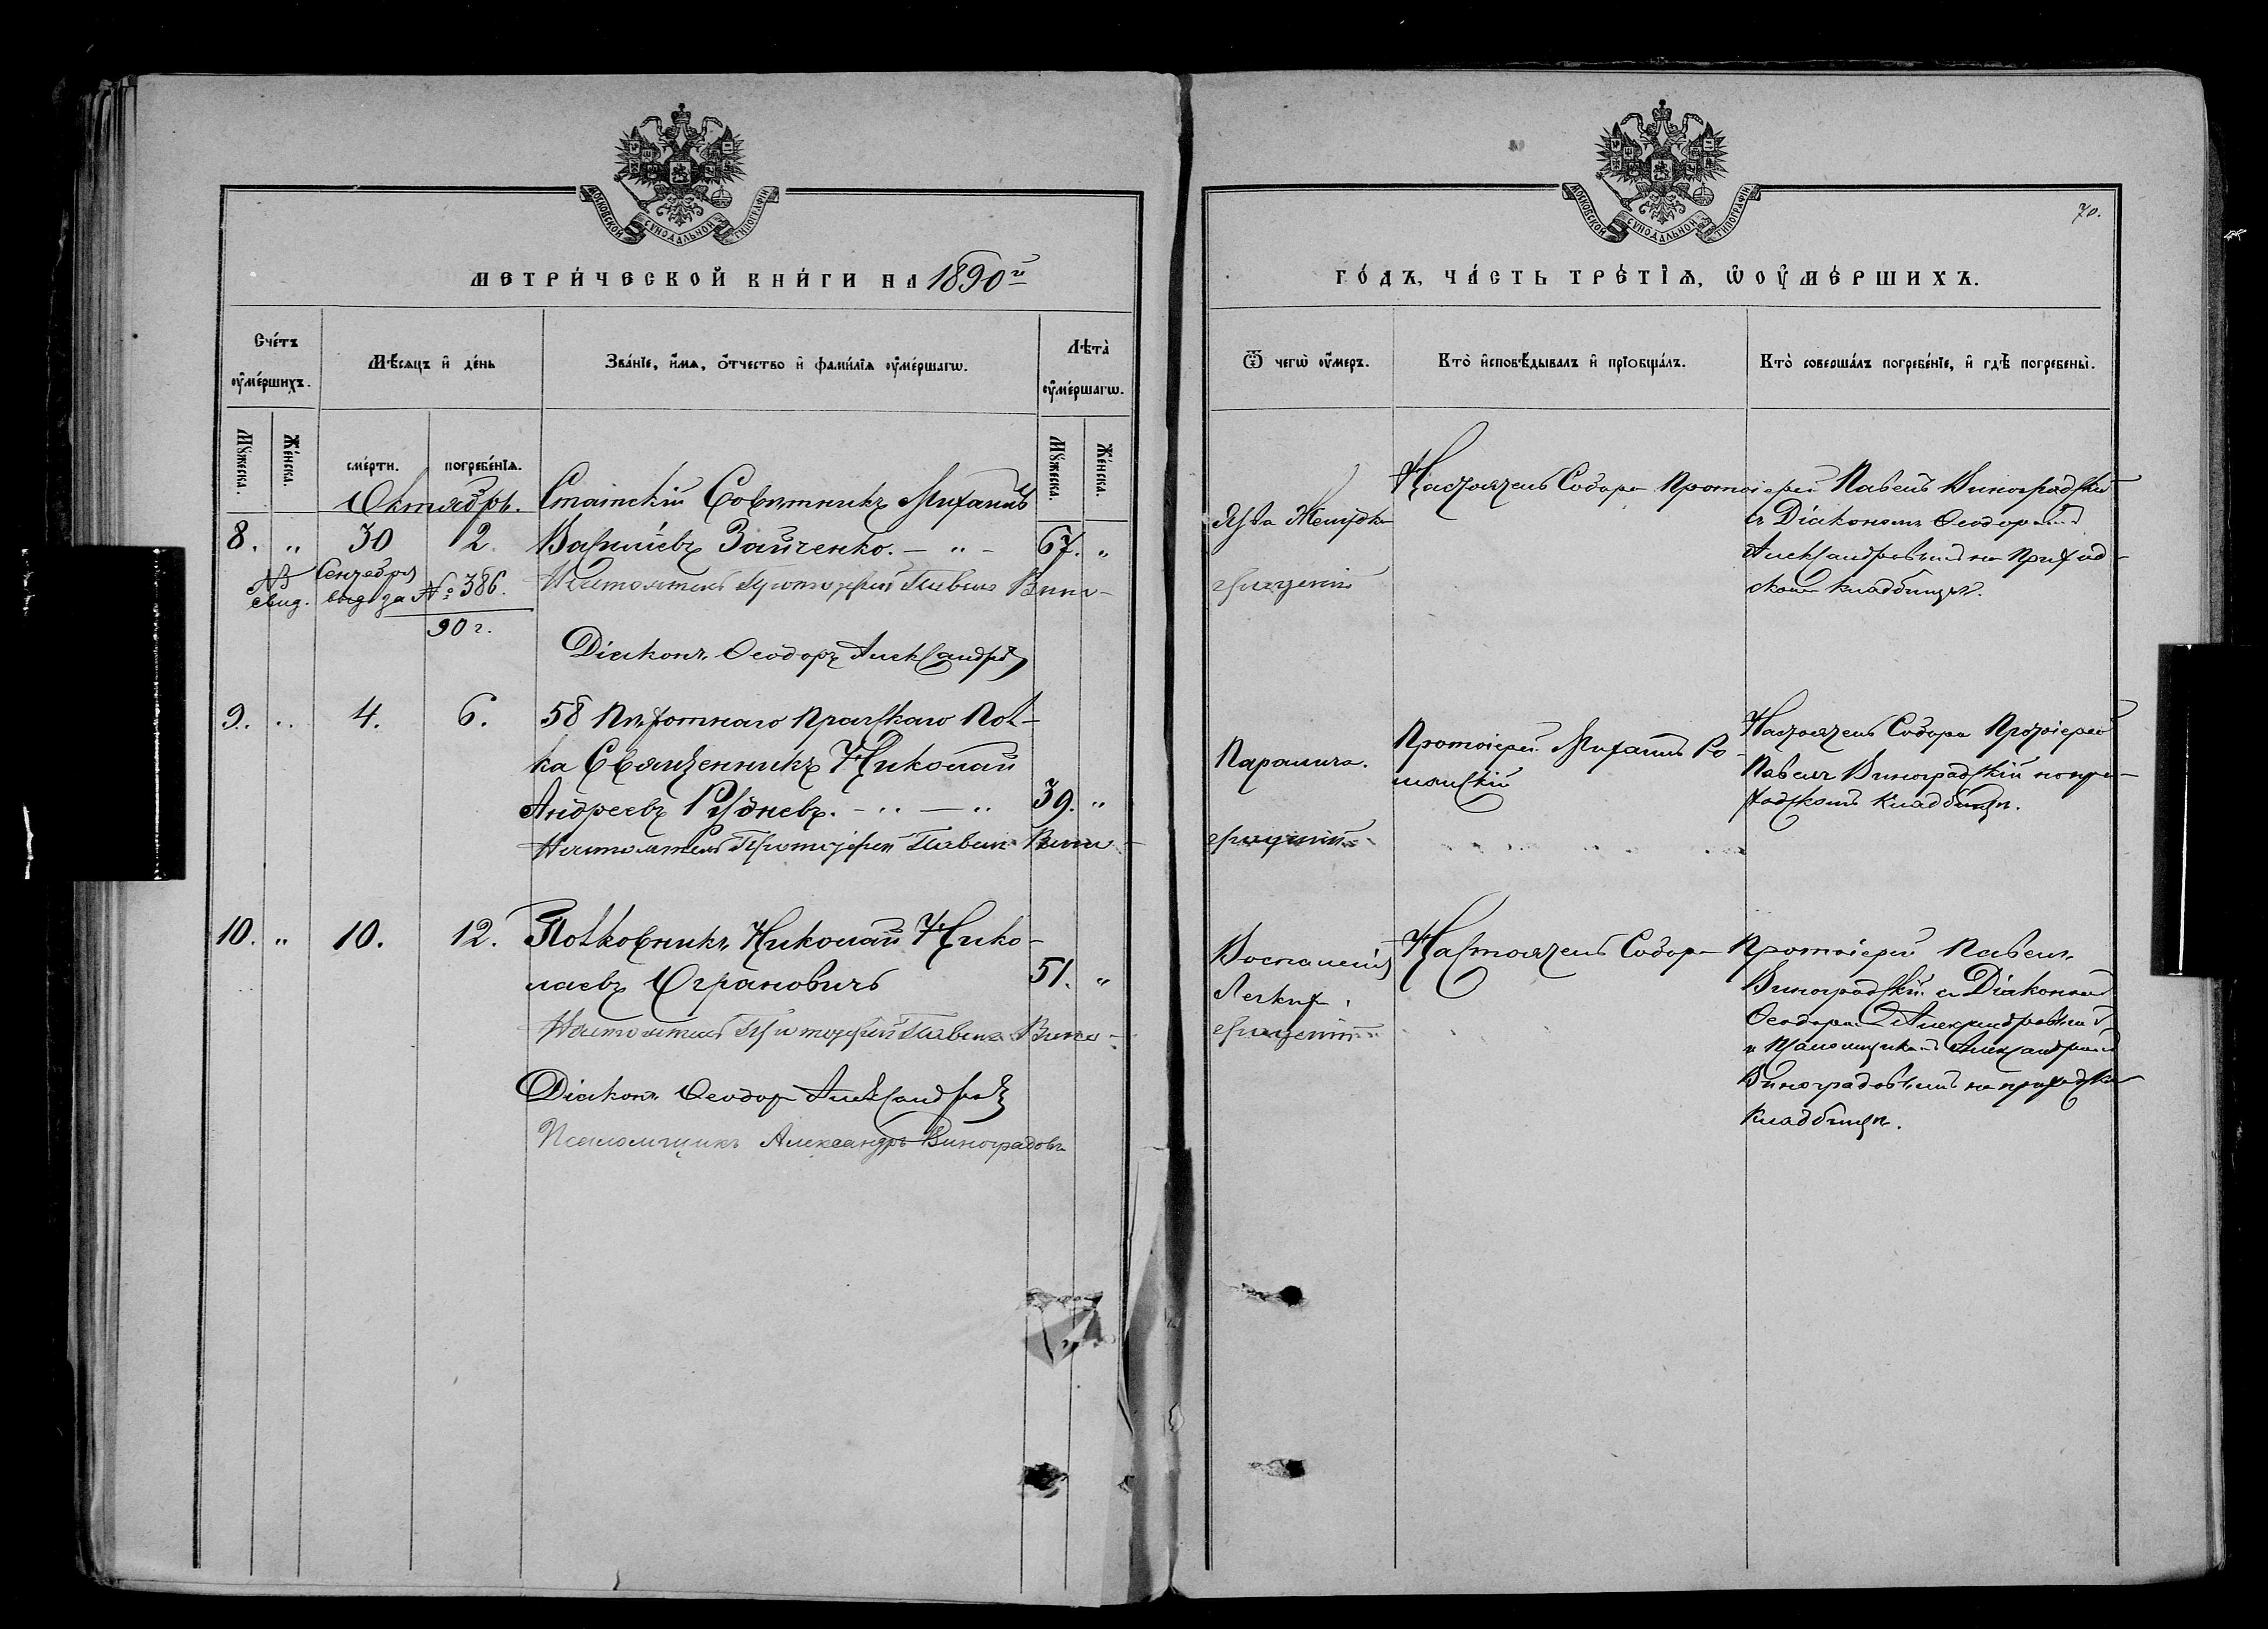 МОСКОВСКОЙ СѴНОДАЛЬНОЙ ТИПОГРАФІИ
МЕТРИ́ЧЕСКОЙ КНИ́ГИ НА 1890й
Сче́тъ ᲂу҆ме́ршихъ.
Мѣ́сяцъ и҆ де́нь
Зва́нїе, и҆́мѧ, ѻ҆́тчество и҆ фами́лїѧ ᲂу҆ме́ршагѡ.
Лѣта̀ ᲂу҆ме́ршагѡ.
Мꙋ́жеска.
Же́нска.
сме́рти.
погребе́нїѧ.
Мꙋ́жеска.
Же́нска.
Октябрь.
Статскій Совѣтникъ Михаилъ
8. „ 30 2. Васильевъ Зайченко. – „ – 67. „
Сентября
NB свид. выд. за № 386.
90 г.
Настоятель Протоіерей Павелъ Вино-
Діаконъ Ѳеодоръ Александровъ
9. „ 4. 6. 58 Пѣхотнаго Пражскаго Пол-
ка Священникъ Николай
Андреевъ Рудневъ. – „ – „ 39. „
Настоятель Протоіерей Павелъ Вино-
10. „ 10. 12. Полковникъ Николай Нико-
лаевъ Ограновичъ 51. „
Настоятель Протоіерей Павелъ Вино-
Діаконъ Ѳеодоръ Александровъ
Псаломщикъ Александръ Виноградовъ
МОСКОВСКОЙ СѴНОДАЛЬНОЙ ТИПОГРАФІИ
70.
ГО́ДЪ, ЧА́СТЬ ТРЕ́ТЇѦ, Ѡ҆ ОУ҆МЕ́РШИХЪ.
Ѿ чегѡ̀ ᲂу҆́меръ.
Кто̀ и҆сповѣ́дывалъ и҆ прїобща́лъ.
Кто̀ соверша́лъ погребе́нїе, и҆ гдѣ̀ погребены̀.
Язва Желудка
градскій
Настоятель Собора Протоіерей Павелъ Виноградскій
съ Діакономъ Ѳеодоромъ
Александровымъ на Приход-
скомъ кладбищѣ.
Параличъ.
градскій
Протоіерей Михаилъ Ро-
Настоятель Собора Протоіерей
Павелъ Виноградскій на при-
ходскомъ кладбищѣ.
Воспаленія
Легких.
градскій
Настоятель Собора Протоіерей Павелъ
Виноградскій съ Діакономъ
Ѳеодоромъ Александровымъ
и Псаломщикомъ Александромъ
Виноградовымъ на приходском
кладбищѣ.